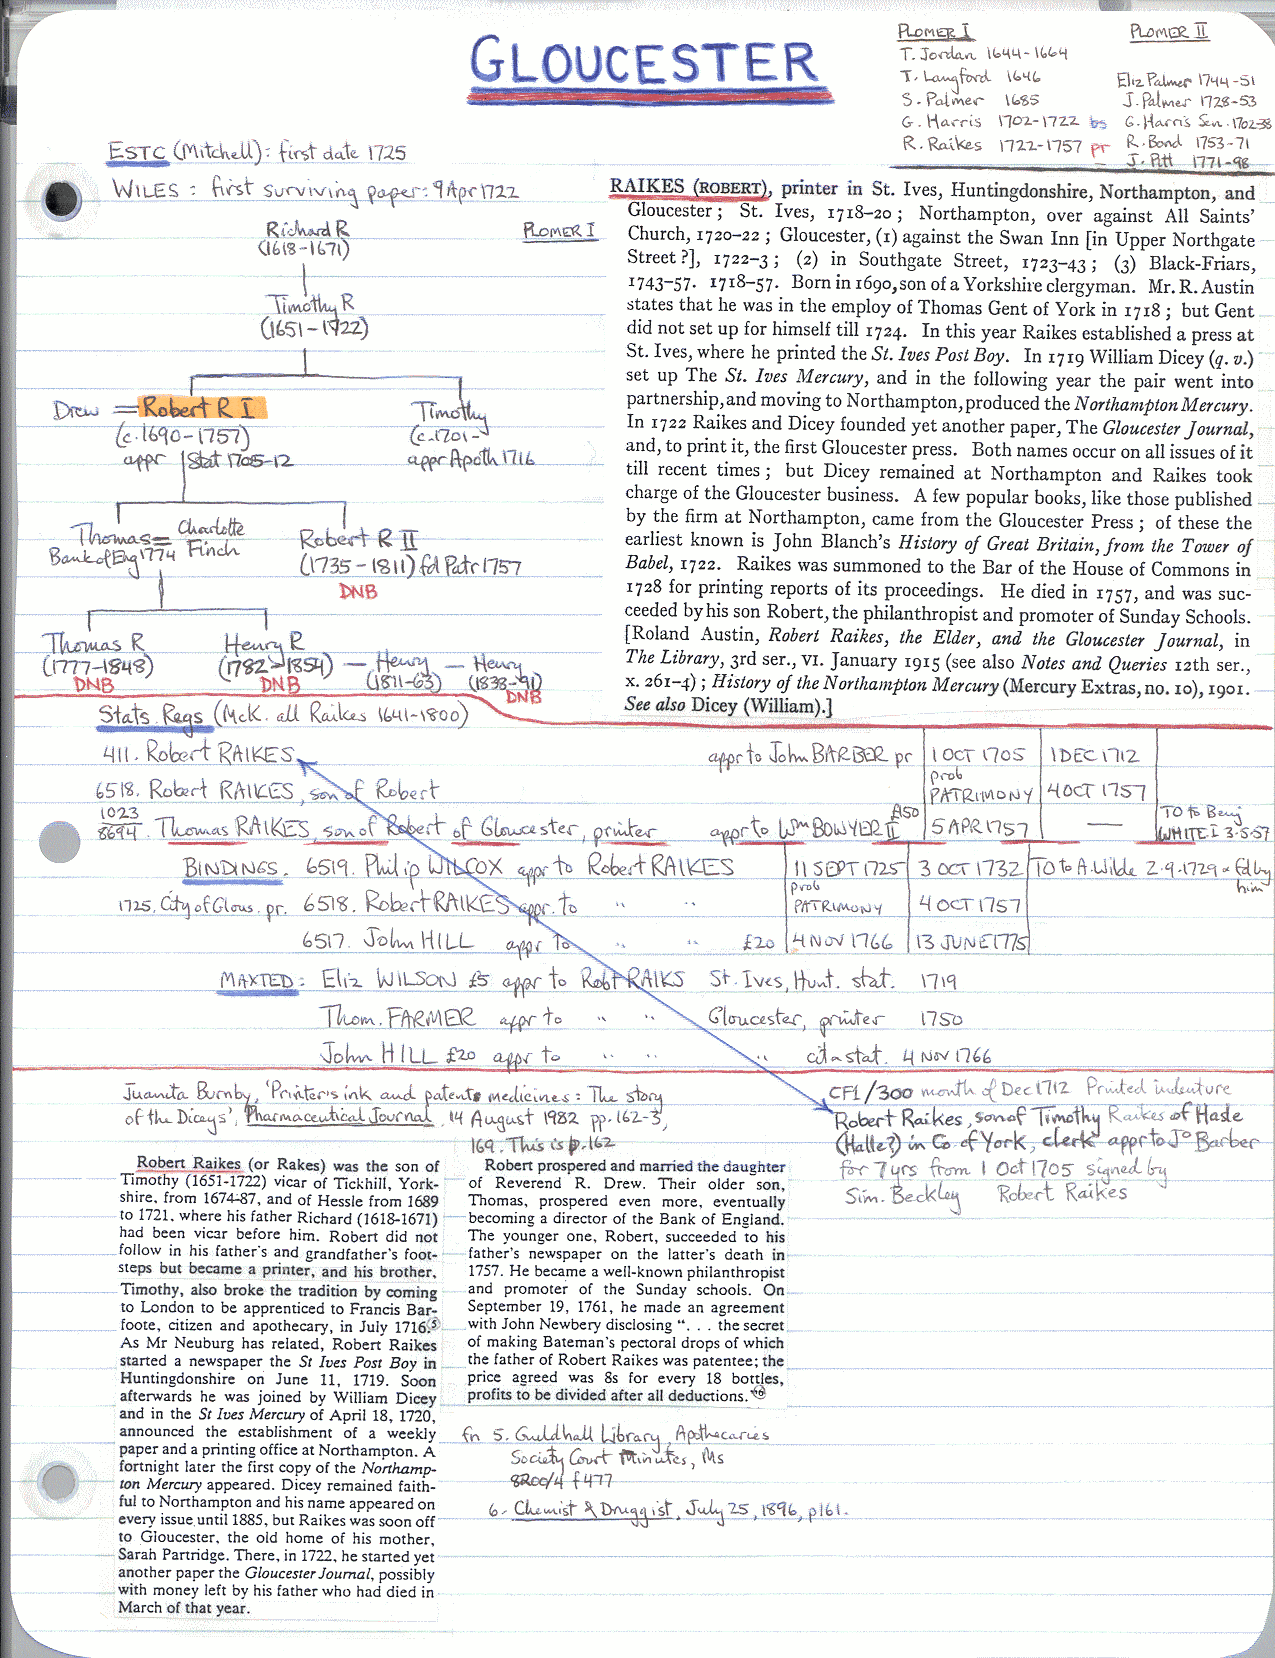 GLOUCESTER
PLOMER I
T. Jordan 1644-1664
T. Langford 1646
S. Palmer 1685
G. Harris 1702-1722 bs
R. Raikes 1722-1757 pr
PLOMER II
Eliz Palmer 1744-51
J. Palmer 1728-53
G. Harris Sen. 1702-38
R. Bond 1753-71
J. Pitt 1771-98
ESTC (Mitchell): first date 1725
WILES: first surviving paper: 9 Apr 1722
Richard R
(1618-1671)
Timothy R
(1651-1722)
Drew = Robert R I
(c.1690-1757)
appr Stat 1705-12
Timothy
(c.1701-
appr Apoth 1716
Thomas = Charlotte Finch
Bank of Eng 1774
Robert R II
(1735-1811) fd Patr 1757
DNB
Thomas R
(1777-1848)
DNB
Henry R
(1782-1854) — Henry — Henry
DNB (1811-63) (1838-91)
DNB
PLOMER I
RAIKES (ROBERT), printer in St. Ives, Huntingdonshire, Northampton, and
Gloucester; St. Ives, 1718-20; Northampton, over against All Saints'
Church, 1720-22; Gloucester, (1) against the Swan Inn [in Upper Northgate
Street?], 1722-3; (2) in Southgate Street, 1723-43; (3) Black-Friars,
1743-57. 1718-57. Born in 1690, son of a Yorkshire clergyman. Mr. R. Austin
states that he was in the employ of Thomas Gent of York in 1718; but Gent
did not set up for himself till 1724. In this year Raikes established a press at
St. Ives, where he printed the St. Ives Post Boy. In 1719 William Dicey (q. v.)
set up The St. Ives Mercury, and in the following year the pair went into
partnership, and moving to Northampton, produced the Northampton Mercury.
In 1722 Raikes and Dicey founded yet another paper, The Gloucester Journal,
and, to print it, the first Gloucester press. Both names occur on all issues of it
till recent times; but Dicey remained at Northampton and Raikes took
charge of the Gloucester business. A few popular books, like those published
by the firm at Northampton, came from the Gloucester Press; of these the
earliest known is John Blanch's History of Great Britain, from the Tower of
Babel, 1722. Raikes was summoned to the Bar of the House of Commons in
1728 for printing reports of its proceedings. He died in 1757, and was suc-
ceeded by his son Robert, the philanthropist and promoter of Sunday Schools.
[Roland Austin, Robert Raikes, the Elder, and the Gloucester Journal, in
The Library, 3rd ser., VI. January 1915 (see also Notes and Queries 12th ser.,
x. 261-4); History of the Northampton Mercury (Mercury Extras, no. 10), 1901.
See also Dicey (William).]
Stats. Regs (McK. all Raikes 1641-1800)
411. Robert RAIKES appr to John BARBER pr 1 OCT 1705 1 DEC 1712
6518. Robert RAIKES, son of Robert prob PATRIMONY 4 OCT 1757
1023
8694. Thomas RAIKES, son of Robert of Gloucester, printer appr to Wm BOWYER II £150 5 APR 1757 — TO to Benj WHITE I 3.5.57
BINDINGS. 6519. Philip WILCOX appr to Robert RAIKES 11 SEPT 1725 3 OCT 1732 TO to A. Wilde 2.9.1729 & fd by him
1725. City of Glous. pr. 6518. Robert RAIKES appr. to " " prob PATRIMONY 4 OCT 1757
6517. John HILL appr to " " £20 4 NOV 1766 13 JUNE 1775
MAXTED: Eliz WILSON £5 appr to Robt RAIKS St. Ives, Hunt. stat. 1719
Thom. FARMER appr to " " Gloucester, printer 1750
John HILL £20 appr to " " " cit & stat. 4 NOV 1766
Juanita Burnby, 'Printer's ink and patent medicines: The story
of the Diceys', Pharmaceutical Journal, 14 August 1982 pp. 162-3,
169. This is p. 162
CF1/300 month of Dec 1712 Printed indenture
Robert Raikes, son of Timothy Raikes of Hasle
(Halle?) in Co of York, clerk appr to Jo Barber
for 7 yrs from 1 Oct 1705 signed by
Sim. Beckley Robert Raikes
Robert Raikes (or Rakes) was the son of
Timothy (1651-1722) vicar of Tickhill, York-
shire, from 1674-87, and of Hessle from 1689
to 1721, where his father Richard (1618-1671)
had been vicar before him. Robert did not
follow in his father's and grandfather's foot-
steps but became a printer, and his brother,
Timothy, also broke the tradition by coming
to London to be apprenticed to Francis Bar-
foote, citizen and apothecary, in July 1716.5
As Mr Neuburg has related, Robert Raikes
started a newspaper the St Ives Post Boy in
Huntingdonshire on June 11, 1719. Soon
afterwards he was joined by William Dicey
and in the St Ives Mercury of April 18, 1720,
announced the establishment of a weekly
paper and a printing office at Northampton. A
fortnight later the first copy of the Northamp-
ton Mercury appeared. Dicey remained faith-
ful to Northampton and his name appeared on
every issue until 1885, but Raikes was soon off
to Gloucester, the old home of his mother,
Sarah Partridge. There, in 1722, he started yet
another paper the Gloucester Journal, possibly
with money left by his father who had died in
March of that year.
Robert prospered and married the daughter
of Reverend R. Drew. Their older son,
Thomas, prospered even more, eventually
becoming a director of the Bank of England.
The younger one, Robert, succeeded to his
father's newspaper on the latter's death in
1757. He became a well-known philanthropist
and promoter of the Sunday schools. On
September 19, 1761, he made an agreement
with John Newbery disclosing ". . . the secret
of making Bateman's pectoral drops of which
the father of Robert Raikes was patentee; the
price agreed was 8s for every 18 bottles,
profits to be divided after all deductions.
fn 5. Guildhall Library, Apothecaries
Society Court Minutes, Ms
8200/4 f 477
6. Chemist & Druggist, July 25, 1896, p161.